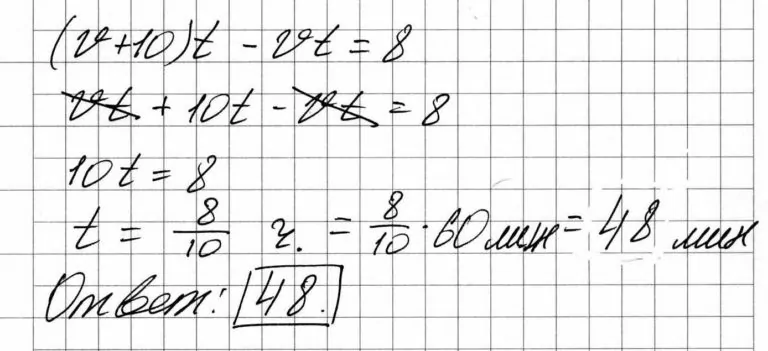 (v+10)t - vt = 8
vt + 10t - vt = 8
10t = 8
t = 8/10 ч. = 8/10 · 60 мин = 48 мин
Ответ: 48.